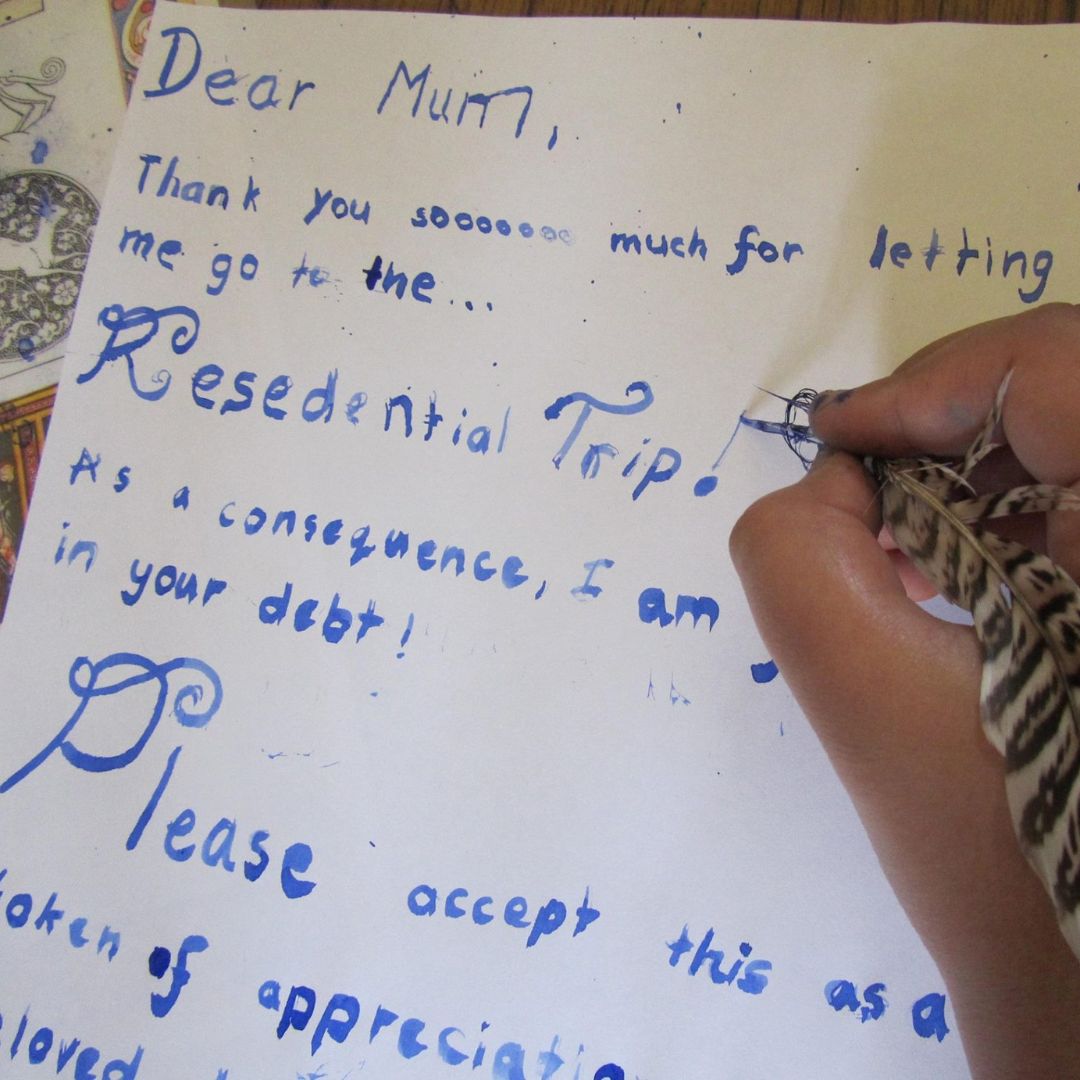 Dear Mum,
Thank you soooooooo much for letting
me go to the...
Resedential Trip!
As a consequence, I am
in your debt!
Please accept this as a
token of appreciatio
loved